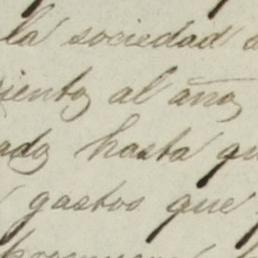 la sociedad
iento al año
ado hasta qu
gastos que